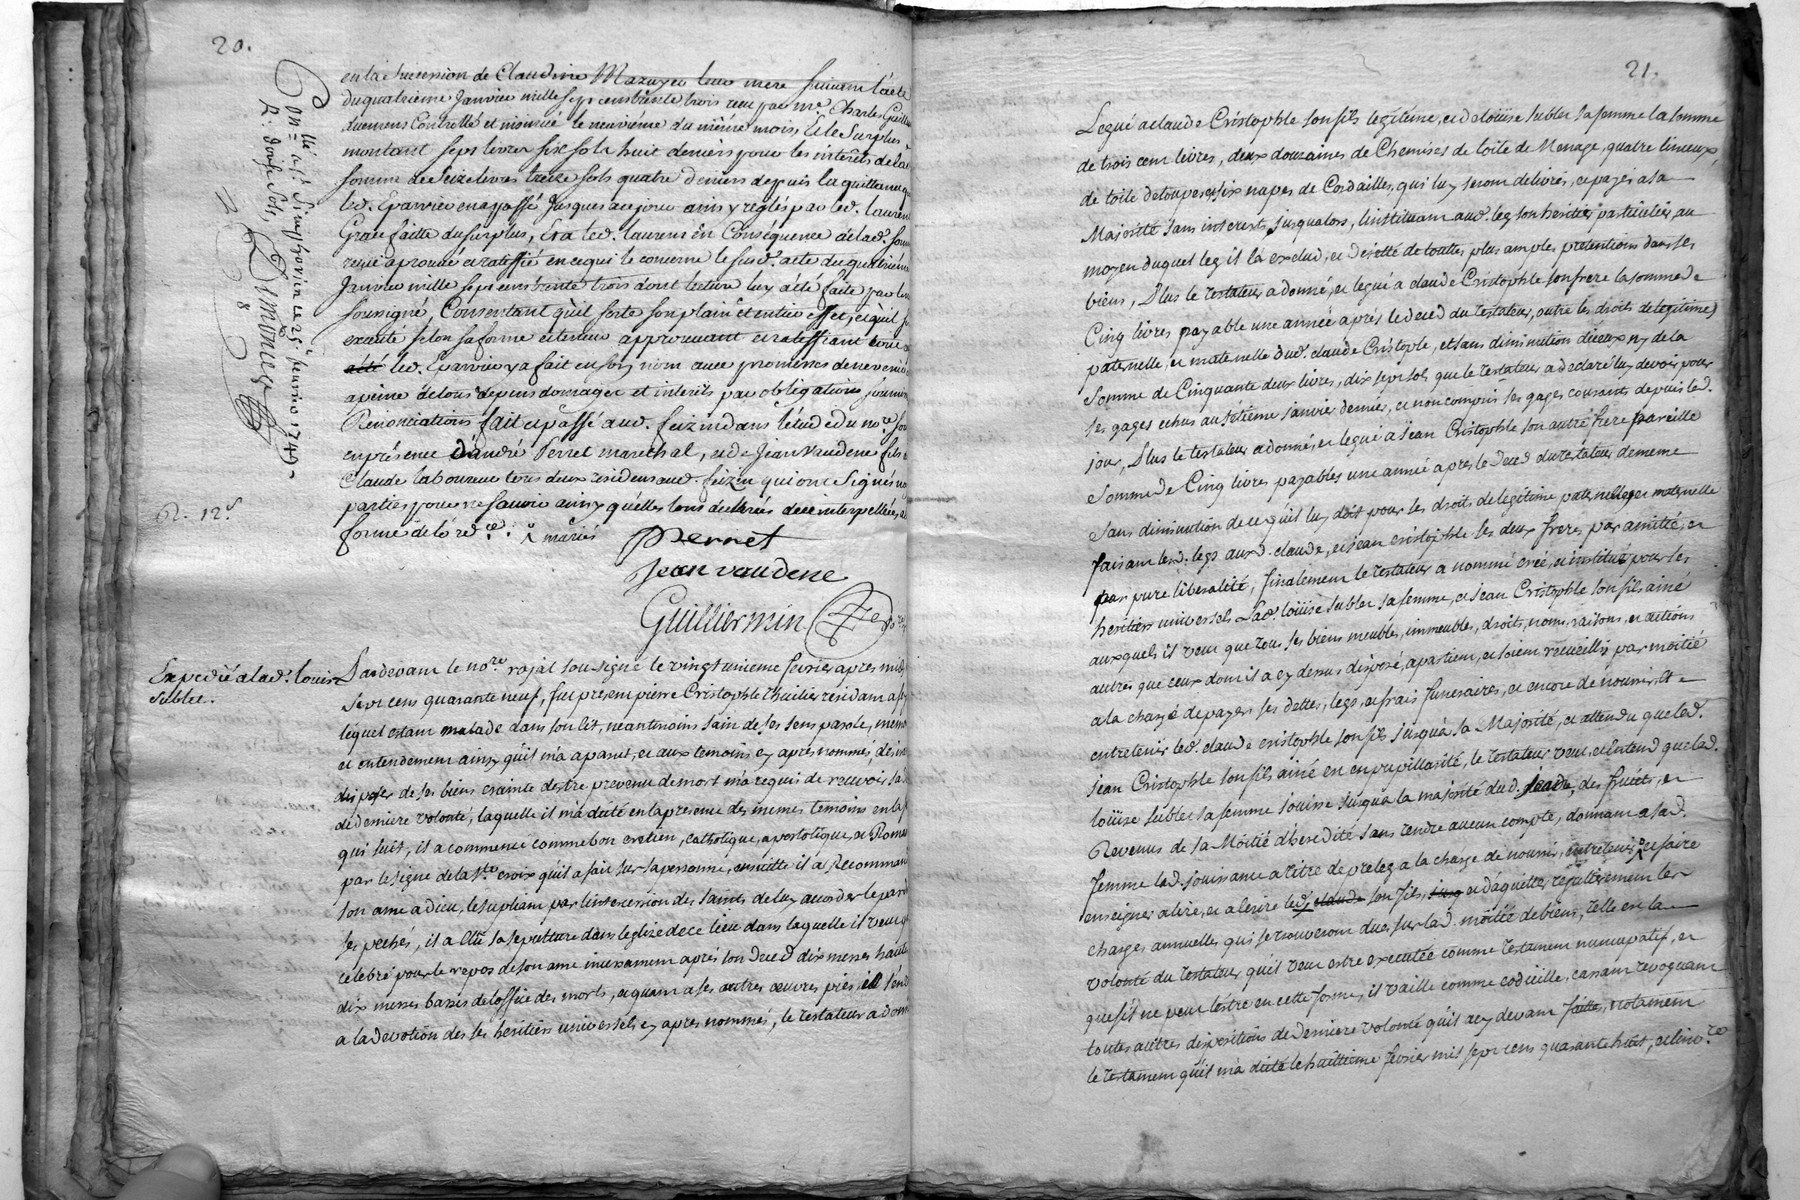 20.
en la succession de Claudine Mazuyer leur mere suivant l'acte
du quatrieme Janvier mille sept cens trente trois recu par me Charles Guill
duement Controllé et insinué le neuvième du même mois, et le surplus
montant sept livres six sols huit deniers pour les interets de la
somme de seize livres treize sols quatre deniers depuis la quittance
led. Eparvier en a passé Jusques au jour ainsy reglés par led. laurent
Grace faitte du surplus, et a led. laurent en Consequence de lad. somme
reçue aprouvé et rattiffié en ce qui le concerne le susd. acte du quatrième
Janvier mille sept cens trente trois dont lecture luy a été faite par le no
soussigné, Consentant qu'il sorte son plain et entier effet, et qu'il soi
executé selon sa forme et teneur approuvant et rattiffiant
led. Eparvier y a fait en son nom avec promesses de ne revenir
a peine de tous depens dommages et interets par obligations soumi
Renonciations fait et passé aud. feizin dans l'etude du nore sou
en présence d'andré Perret marechal, et de Jean Vaudene fils
Claude laboureur tous deux residens aud. feizin qui ont signés no
parties pour ne sçavoir ainsy qu'elles l'ont declarées de ce interpellées, a
forme de l'ord.ce. mariés
Con.lle a St Simphorien ce 25e fevrier 1749
R. douze sols,
R. 12.s
Perret
Jean vaudene
Guilliermin
Expedié a lad. louise
sublet.
Pardevant le nore royal soussigné le vingt unieme fevrier apres midy
sept cens quarante neuf, fut present pierre Cristophle thuilier résidant a f
lequel estant malade dans son lit, neantmoins sain de ses sens parole, memo
et entendement ainsy qu'il m'a aparut, et aux temoins cy après nommés, desi
disposer de ses biens crainte destre prevenu de mort m'a requi de recevoir sa
de derniere volonté, laquelle il m'a dicté en la presence des memes temoins en la
qui suit, il a commencé comme bon cretien, catholique, apostolique, et Romai
par le signe de la Ste croix qu'il a fait sur sa personne, ensuitte il a Recommand
son ame a Dieu, le supliant par l'intercession des saints de luy accorder le pard
ses pechés, il a Esleu sa sepulture dans l'eglise de ce lieu dans laquelle il veut q
celebré pour le repos de son ame incessament après son Deced dix messes haute
dix messes basses de l'office des morts, et quant a ses autres œuvres pies, il s'en
a la devotion de ses heritiers universels cy apres nommés, le Testateur a donn
21.
Legué a claude Cristophle son fils legitime, et de louise sublet sa femme la somme
de trois cent livres, deux douzaines de Chemises de toile de Menage, quatre linceux
de toile d'etoupes et six napes de Cordailles, qui luy seront delivrés, et payés a sa
Majorité sans interests jusqu'alors, l'instituant aud. leg son heritier particulier au
moyen duquel leg il l'a exclud, et dejetté de toutes plus amples pretentions dans ses
biens, Plus le testateur a donné, et legué a claude Cristophle son frere la somme de
Cinq livres payable une année après le deced du testateur, outre les droits de legitime
paternelle, et maternelle dud. claude Cristophle, et sans diminution d'iceux ny de la
Somme de Cinquante deux livres, dix sept sols que le testateur a declaré luy devoir pour
ses gages echus au sixième janvier dernier, et non compris ses gages courants depuis led.
jour, Plus le testateur a donné, et legué a jean Cristophle son autre frere pareille
Somme de Cinq livres payables une année après le Deced du testateur de meme
Sans diminution de ce qu'il luy doit pour les droits de legitime paternelle et maternelle
faisant lesd. legs auxd. claude, et jean cristophle ses deux freres par amitié, et
par pure liberalité, finalement le testateur a nommé créé, et institué pour ses
heritiers universels Lad. louise sublet sa femme, et jean Cristophle son fils ainé
auxquels il veut que tous ses biens meubles, immeubles, droits, noms, raisons, et actions
autres que ceux dont il a cy dessus disposé, apartient, et soient recueillis par moitié
a la charge de payer ses dettes, legs, et frais funeraires, et encore de nourrir, et
entretenir led. claude cristophle son fils jusqu'a sa Majorité, et attendu que led.
jean Cristophle son fils ainé en en pupillarité, le testateur veut, et entend que lad.
louise sublet sa femme jouisse jusqu'a la majorité dud. jean, des fruits, et
Revenus de sa Moitié d'heredité sans rendre aucun compte, donnant a sad.
femme lad. jouissance a titre de preleg a la charge de nourrir, entretenir et faire
enseigner a lire, et a ecrire led. claude son fils, et d'aquitter regulierement les
charges annuelles qui se trouveront dues sur lad. moitié de biens, Telle en la
volonté du testateur qu'il veut estre executée comme testament nuncupatif, et
que s'il ne peut l'estre en cette forme, il vaille comme codicille, cassant revoquant
toutes autres dispositions de derniere volonté qu'il a cy devant faites, notament
le testament qu'il m'a dicté le huitieme fevrier mil sept cens quarante huit,